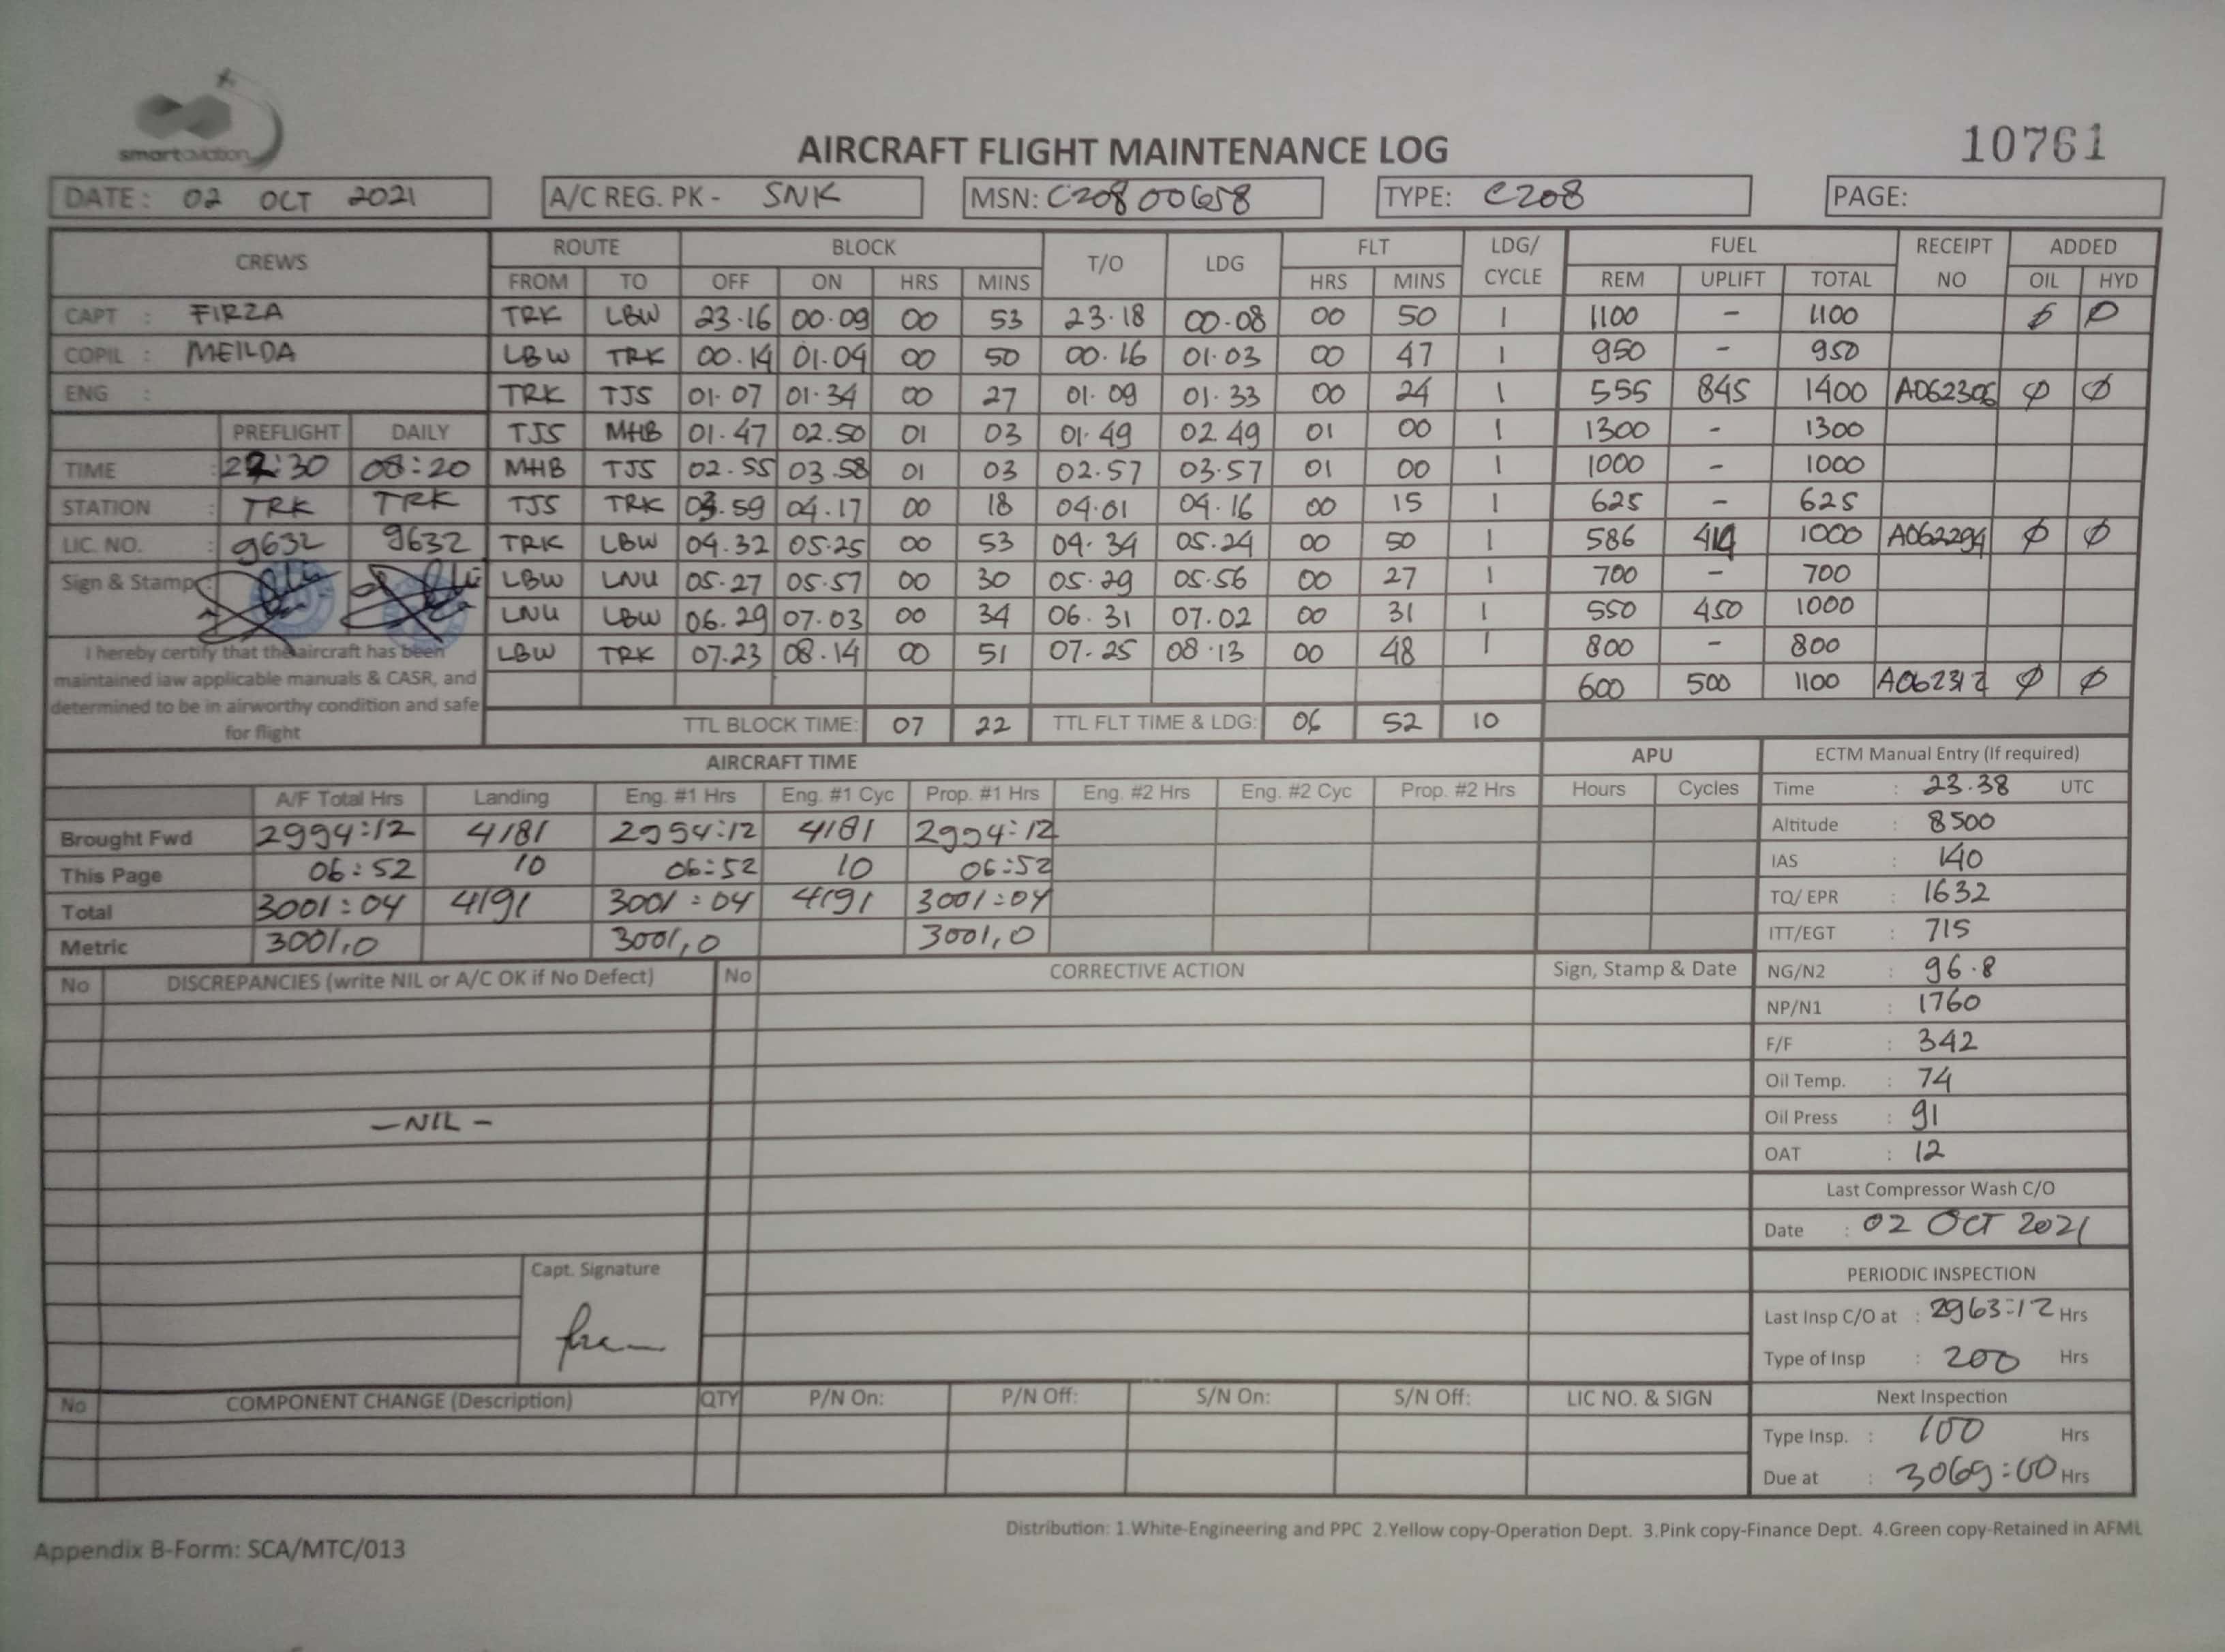 smartaviation
AIRCRAFT FLIGHT MAINTENANCE LOG
10761
DATE: 02 OCT 2021
A/C REG. PK - SNK
MSN: C20800658
TYPE: C208
PAGE:
CREWS ROUTE BLOCK T/O LDG FLT LDG/ CYCLE FUEL RECEIPT NO ADDED
FROM TO OFF ON HRS MINS HRS MINS REM UPLIFT TOTAL OIL HYD
CAPT : FIRZA TRK LBW 23.16 00.09 00 53 23.18 00.08 00 50 1 1100 - 1100 Ø Ø
COPIL : MEILDA LBW TRK 00.14 01.04 00 50 00.16 01.03 00 47 1 950 - 950
ENG : TRK TJS 01.07 01.34 00 27 01.09 01.33 00 24 1 555 845 1400 A062306 Ø Ø
PREFLIGHT DAILY TJS MHB 01.47 02.50 01 03 01.49 02.49 01 00 1 1300 - 1300
TIME : 22:30 08:20 MHB TJS 02.55 03.58 01 03 02.57 03.57 01 00 1 1000 - 1000
STATION : TRK TRK TJS TRK 03.59 04.17 00 18 04.01 04.16 00 15 1 625 - 625
LIC. NO. : 9632 9632 TRK LBW 04.32 05.25 00 53 04.34 05.24 00 50 1 586 414 1000 A062294 Ø Ø
Sign & Stamp : LBW LNU 05.27 05.57 00 30 05.29 05.56 00 27 1 700 - 700
LNU LBW 06.29 07.03 00 34 06.31 07.02 00 31 1 550 450 1000
LBW TRK 07.23 08.14 00 51 07.25 08.13 00 48 1 800 - 800
600 500 1100 A062312 Ø Ø
I hereby certify that the aircraft has been
maintained iaw applicable manuals & CASR, and
determined to be in airworthy condition and safe
for flight
TTL BLOCK TIME: 07 22 TTL FLT TIME & LDG: 06 52 10
AIRCRAFT TIME APU
A/F Total Hrs Landing Eng. #1 Hrs Eng. #1 Cyc Prop. #1 Hrs Eng. #2 Hrs Eng. #2 Cyc Prop. #2 Hrs Hours Cycles
Brought Fwd 2994:12 4181 2994:12 4181 2994:12
This Page 06:52 10 06:52 10 06:52
Total 3001:04 4191 3001:04 4191 3001:04
Metric 3001,0 3001,0 3001,0
ECTM Manual Entry (If required)
Time : 23.38 UTC
Altitude : 8500
IAS : 140
TQ/ EPR : 1632
ITT/EGT : 715
NG/N2 : 96.8
NP/N1 : 1760
F/F : 342
Oil Temp. : 74
Oil Press : 91
OAT : 12
Last Compressor Wash C/O
Date : 02 OCT 2021
PERIODIC INSPECTION
Last Insp C/O at : 2963:12 Hrs
Type of Insp : 200 Hrs
Next Inspection
Type Insp. : 100 Hrs
Due at : 3069:00 Hrs
No DISCREPANCIES (write NIL or A/C OK if No Defect) No CORRECTIVE ACTION Sign, Stamp & Date
- NIL -
Capt. Signature
No COMPONENT CHANGE (Description) QTY P/N On: P/N Off: S/N On: S/N Off: LIC NO. & SIGN
Distribution: 1.White-Engineering and PPC 2.Yellow copy-Operation Dept. 3.Pink copy-Finance Dept. 4.Green copy-Retained in AFML
Appendix B-Form: SCA/MTC/013